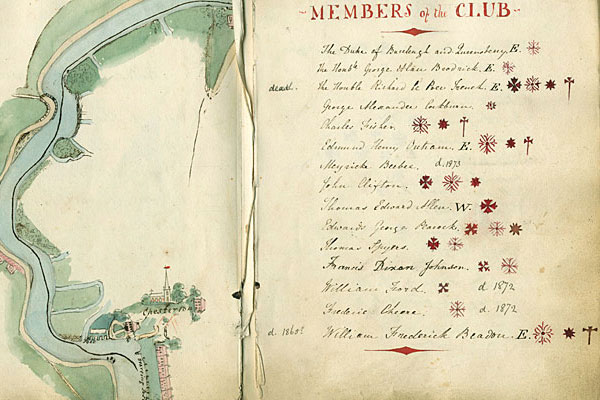 MEMBERS of the CLUB
The Duke of Buccleugh and Queensbery, E.
the Honble George Alan Brodrick. E.
dead. the Honble Richard le Poer Trench. E.
George Alexander Cockburn.
Charles Fisher.
Edmund Henry E.
Meyrick Beebee. d. 1873
John Clifton.
Thomas Edward Allen. W.
Edwards George Peacock.
Thomas Spyers.
Francis Dixon Johnson.
William Ford. d. 1872
Frederic Cheere. d. 1872
d. 1860? William Frederick Beadon. E.
Chester